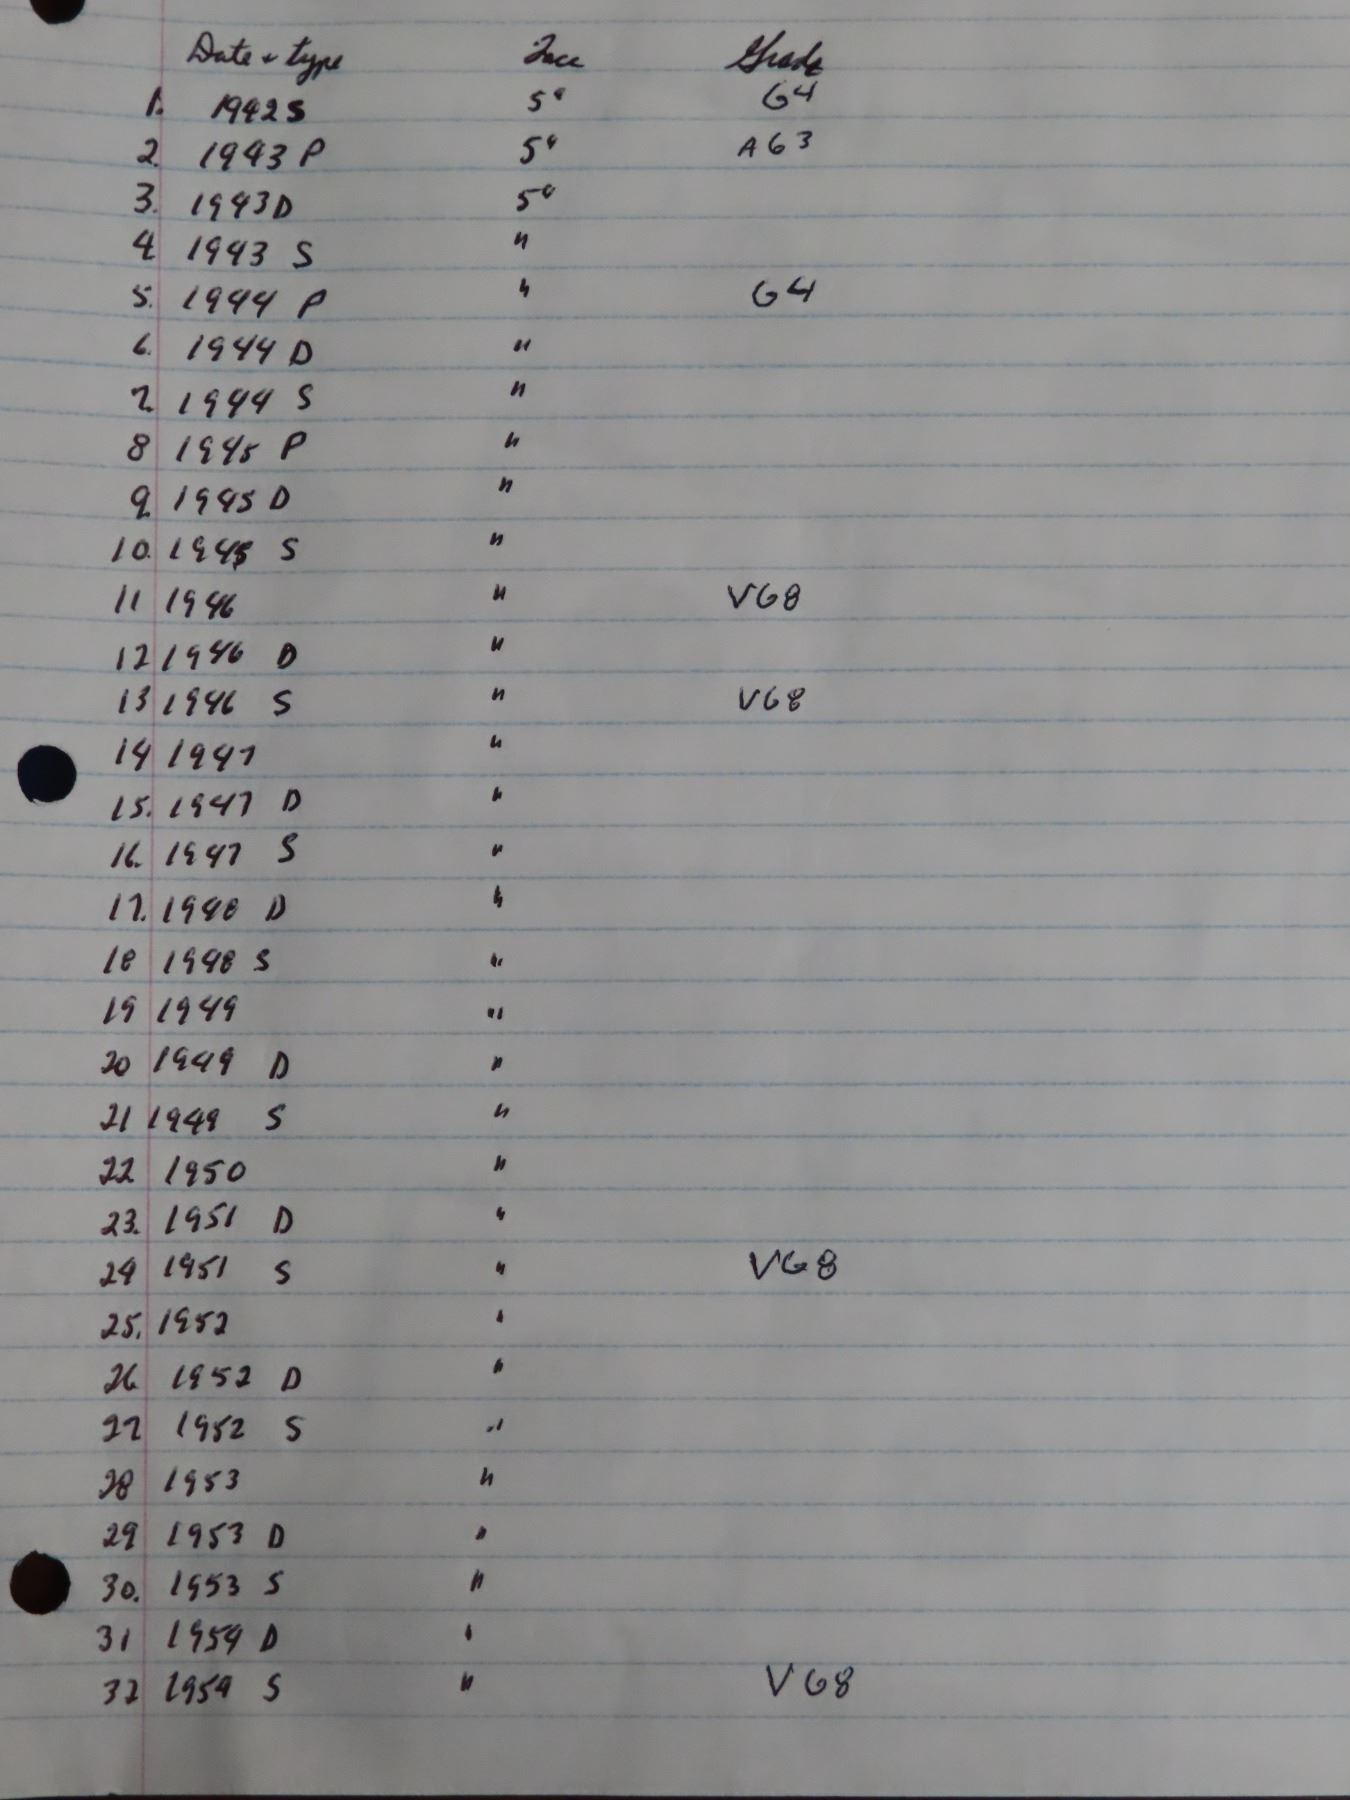 Date + type Face Grade
1. 1942 S 5¢ G4
2. 1943 P 5¢ AG3
3. 1943 D 5¢
4 1943 S "
5. 1944 P " G4
6. 1944 D "
7. 1944 S "
8 1945 P "
9. 1945 D "
10. 1945 S "
11 1946 " VG8
12 1946 D "
13 1946 S " VG8
14 1947 "
15. 1947 D "
16. 1947 S "
17. 1948 D "
18 1948 S "
19 1949 "
20 1949 D "
21 1949 S "
22 1950 "
23. 1951 D "
24 1951 S " VG8
25. 1952 "
26 1952 D "
27 1952 S "
28 1953 "
29 1953 D "
30. 1953 S "
31 1954 D "
32 1954 S " VG8